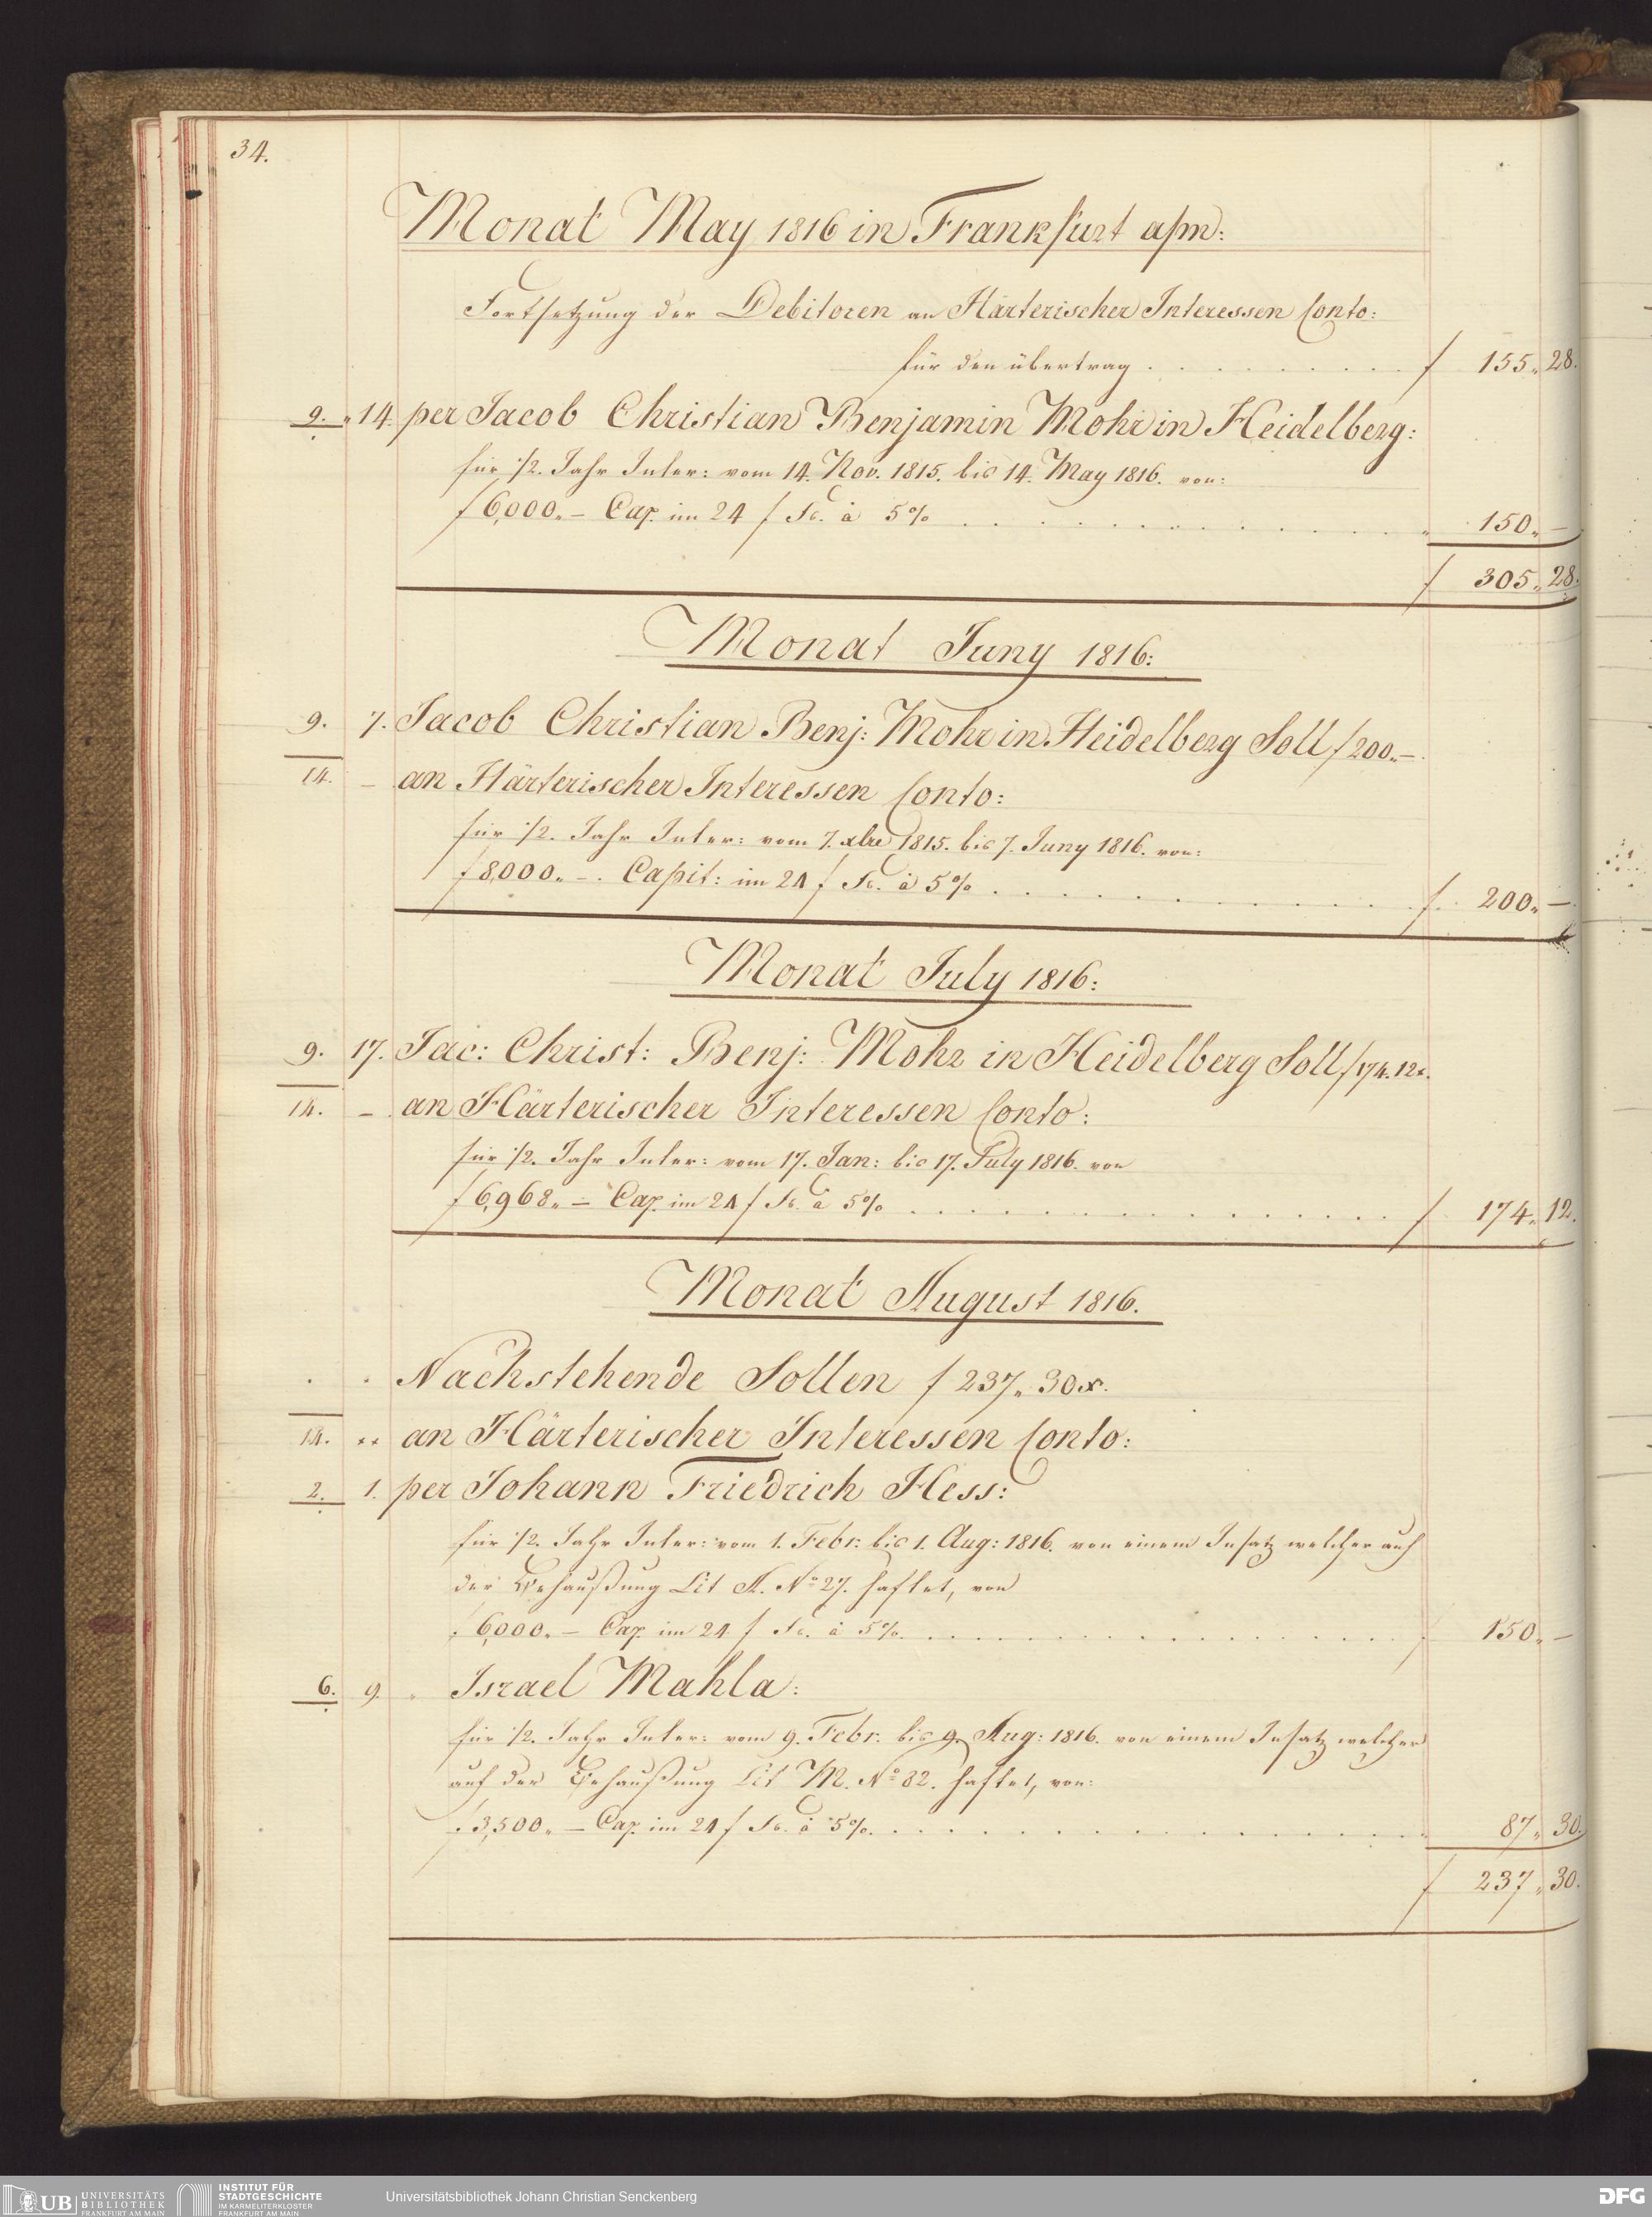 34.
Monat May 1816 in Frankfurt a/m:
Fortsetzung der Debitoren an Härterischer Interessen Conto:
für den übertrag . . . . . . . . . f 155„ 28.
9. „ 14. per Jacob Christian Benjamin Mohr in Heidelberg:
für 1/2. Jahr Inter: vom 14. Nov. 1815. bis 14. May 1816. von:
f 6,000„ – Cap. im 24 f Fs. à 5% . . . . . . . . . . . „ 150„ –
f 305„ 28.
Monat Juny 1816:
9. 7. Jacob Christian Benj: Mohr in Heidelberg Soll f 200„ –.
14. – an Härterischer Interessen Conto:
für 1/2. Jahr Inter: vom 7. xbre 1815. bis 7. Juny 1816. von:
f 8,000„ –. Capit: im 24 f Fs. à 5% . . . . . . . . . . f 200„ –.
Monat July 1816:
9. 17. Jac: Christ: Benj: Mohr in Heidelberg Soll f 174. 12x.
14. – an Härterischer Interessen Conto:
für 1/2. Jahr Inter: vom 17. Jan: bis 17. July 1816. von
f 6,968„ – Cap. im 24 f Fs. à 5% . . . . . . . . . . . . f 174„ 12.
Monat August 1816.
. . Nachstehende Sollen f 237„ 30x.
14. .. an Härterischer Interessen Conto:
2. 1. per Johann Friedrich Hess:
für 1/2. Jahr Inter: vom 1. Febr: bis 1. Aug: 1816. von einem Insatz welcher auf
der Behaußung Lit A. No 27. haftet, von
f 6,000„ – Cap. im 24 f Fs. à 5% . . . . . . . . . . . . f 150„ –
6. 9. „ Israel Mahla:
für 1/2. Jahr Inter: vom 9. Febr. bis 9. Aug: 1816. von einem Insatz welcher
auf der Behaußung Lit M. No 82. haftet, von:
f 3,500„ – Cap. im 24 f Fs. à 5% . . . . . . . . . . . . „ 87„ 30.
f 237„ 30.
UB UNIVERSITÄTS
BIBLIOTHEK
FRANKFURT AM MAIN
INSTITUT FÜR
STADTGESCHICHTE
IM KARMELITERKLOSTER
FRANKFURT AM MAIN
Universitätsbibliothek Johann Christian Senckenberg
DFG